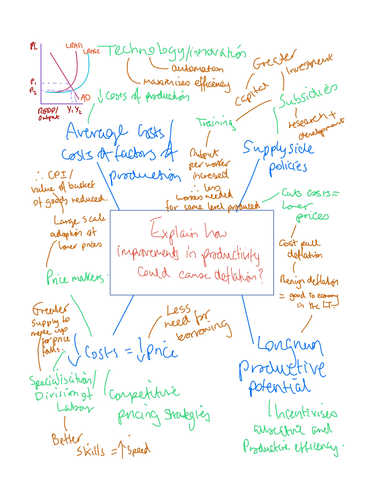 PL
LRAS1
LRAS2
P1
P2
AD
RGDP/
Output
Y1 Y2
Technology/innovation
automation
maximises efficiency
↓ costs of production
Average Costs/
costs of factors of
production
Training
Output
per worker
increased
∴ less
workers needed
for same level produced
Capital
Greater
Investment
Subsidies
research +
development
Supply side
policies
Cuts costs =
lower
prices
Cost pull
deflation
Benign deflation
= good to economy
in the LT
∴ CPI/
value of basket
of goods reduced.
Large scale
adoption of
lower prices
Price makers
Explain how
improvements in productivity
could cause deflation?
Greater
supply to
make up
for price
falls
↓ Costs = ↓ Price
Less
need for
borrowing
Specialisation/
Division of
Labour
Better
Skills = ↑ Speed
Competitive
pricing strategies
Longrun
productive
potential
Incentivises
allocative and
Productive efficiency.